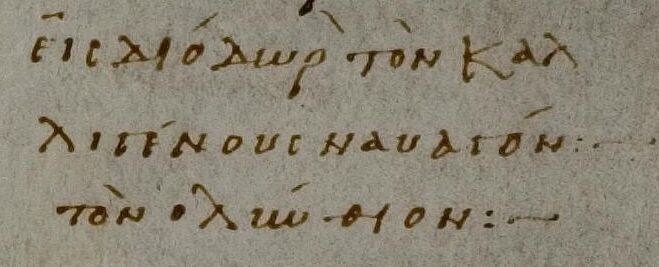 εἰς διόδωρ τὸν καλ
λιγένους ναυαγόν:—
τὸν ολύνθιον:—